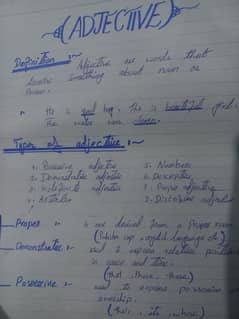 (ADJECTIVE)
Definition :~ Adjective are words that
something about noun or
He is good boy. She is beautiful girl.
The water were clean.
Types of adjective :~
1. Possessive adjective 5. Numbers
2. Demonstrative adjective 6. Descriptive
3. Indefinite adjective 7. Proper adjective
4. Articles 8. Distributive adjective
Proper :~ is are derived form a proper noun
Demonstrative :~ used to express relative position
in space and time.
(that, these, those)
Possessive :~ used to express possession
ownership.
its